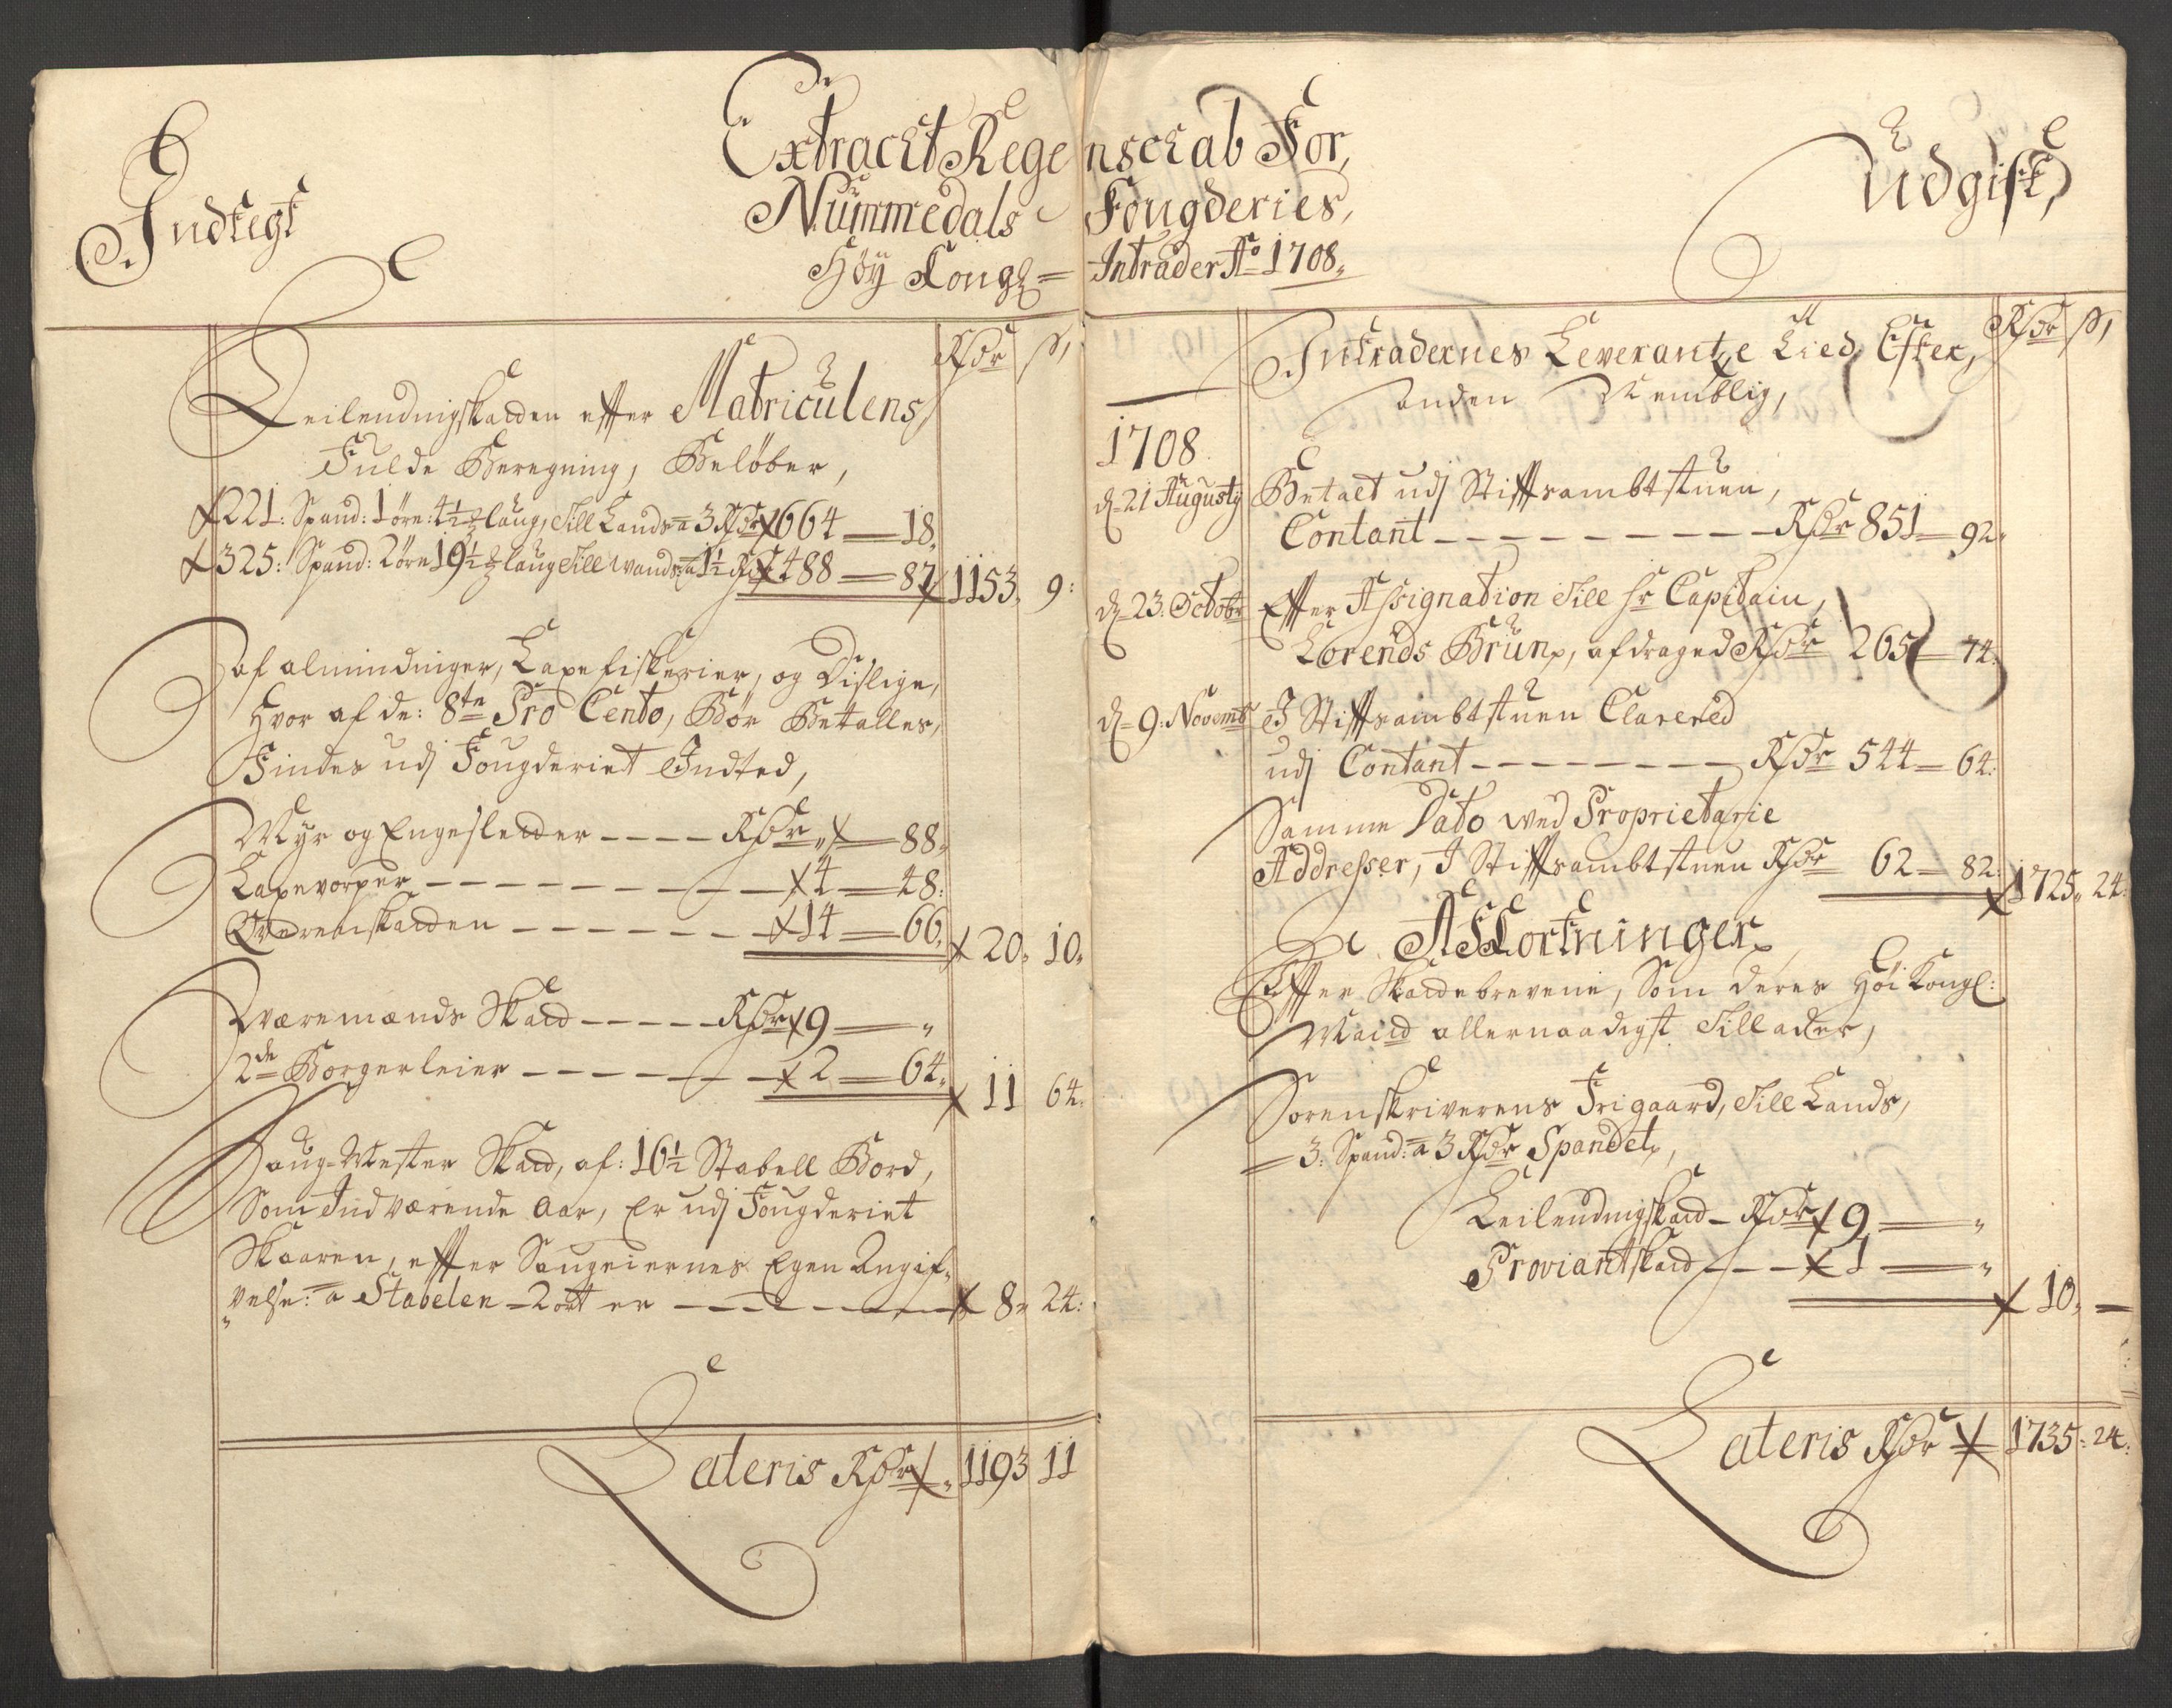 Extract Regenschab For,
Nummedals Fougderies,
Höy Kongl= Intrader Ao 1708,
Indtegt
Rdr ß,
Leilendingskatten efter Matriculens,
Fulde Beregning, Beløber,
221: Spand: 1 öre: 4½ laug, Till Lands a 3 Rdr 664 — 18,
325: Spand: 2 öre 19½ laug Till Wands: a 1½ Rd 488 — 87 1153, 9:
af almindinger, Laxefiskerier, og Dislige,
Hvor af de: 8te Pro Cento, Bör Betalles,
Findes udj Fougderiet Indted,
Myr og Engesletter ---- Rdr „ — 88,
Laxevorper ---- 4 — 48:
Qvernskatten ---- 14 — 66, 20, 10,
Waremands Skatt ---- Rdr 9 — „
2de Borgerleier ---- 2 — 64, 11 64:
Saug-Mester Skatt, af: 16½ Stabell Bord,
Som Indværende Aar, Er udj Fougderiet
Skaaren, efter Saugeiernes Egen Angif„
„velse: a Stabelen 2 ort er ---- 8„ 24:
Lateris Rdr 1193 11
Udgift,
Rdr ß,
Intradernes Leverantze Tied Efter,
anden Nemblig,
1708.
d= 21 Augusty Betalt udj Stiftsambtstuen,
Contant ---- Rdr 851 — 92,
d= 23. Octobr Efter Assignation Till Hr Capitain,
Lorends Brun, afdraged Rdr 265 — 74:
d= 9: Novembr I Stiftsambtstuen Clarered
udj Contant ---- Rdr 544 — 64:
Samme Dato wed Proprietarie
Addresser, I Stiftsambtstuen Rdr 62 — 82: 1725, 24:
Afkortninger,
Efter Skattebrevene, Som Deres Höi Kongl:
Maitt allernaadigst Tillader,
Sorenskriverens Frigaard, Till Lands,
— 3: Spand: a 3 Rdr Spandet,
Leilendingskatt - Rdr 9 — „
Proviantskatt --- 1 — „
10, —
Lateris Rdr 1735: 24: